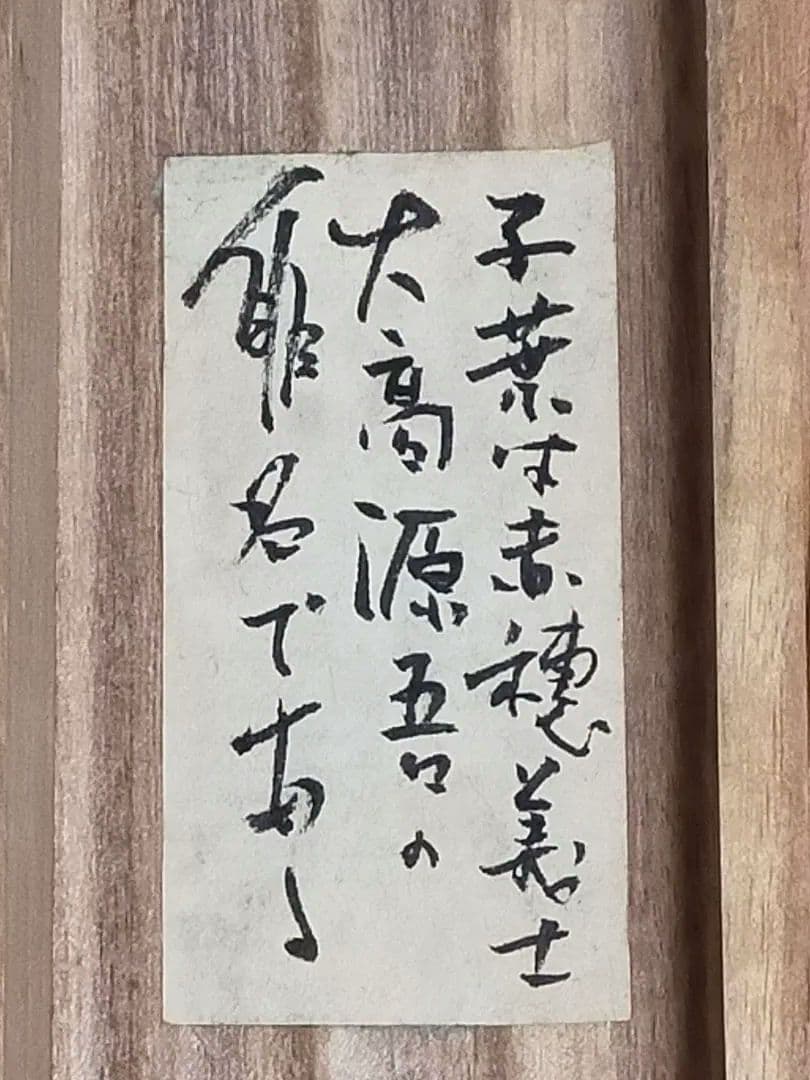 子葉は赤穂義士
大高源吾の
俳名である